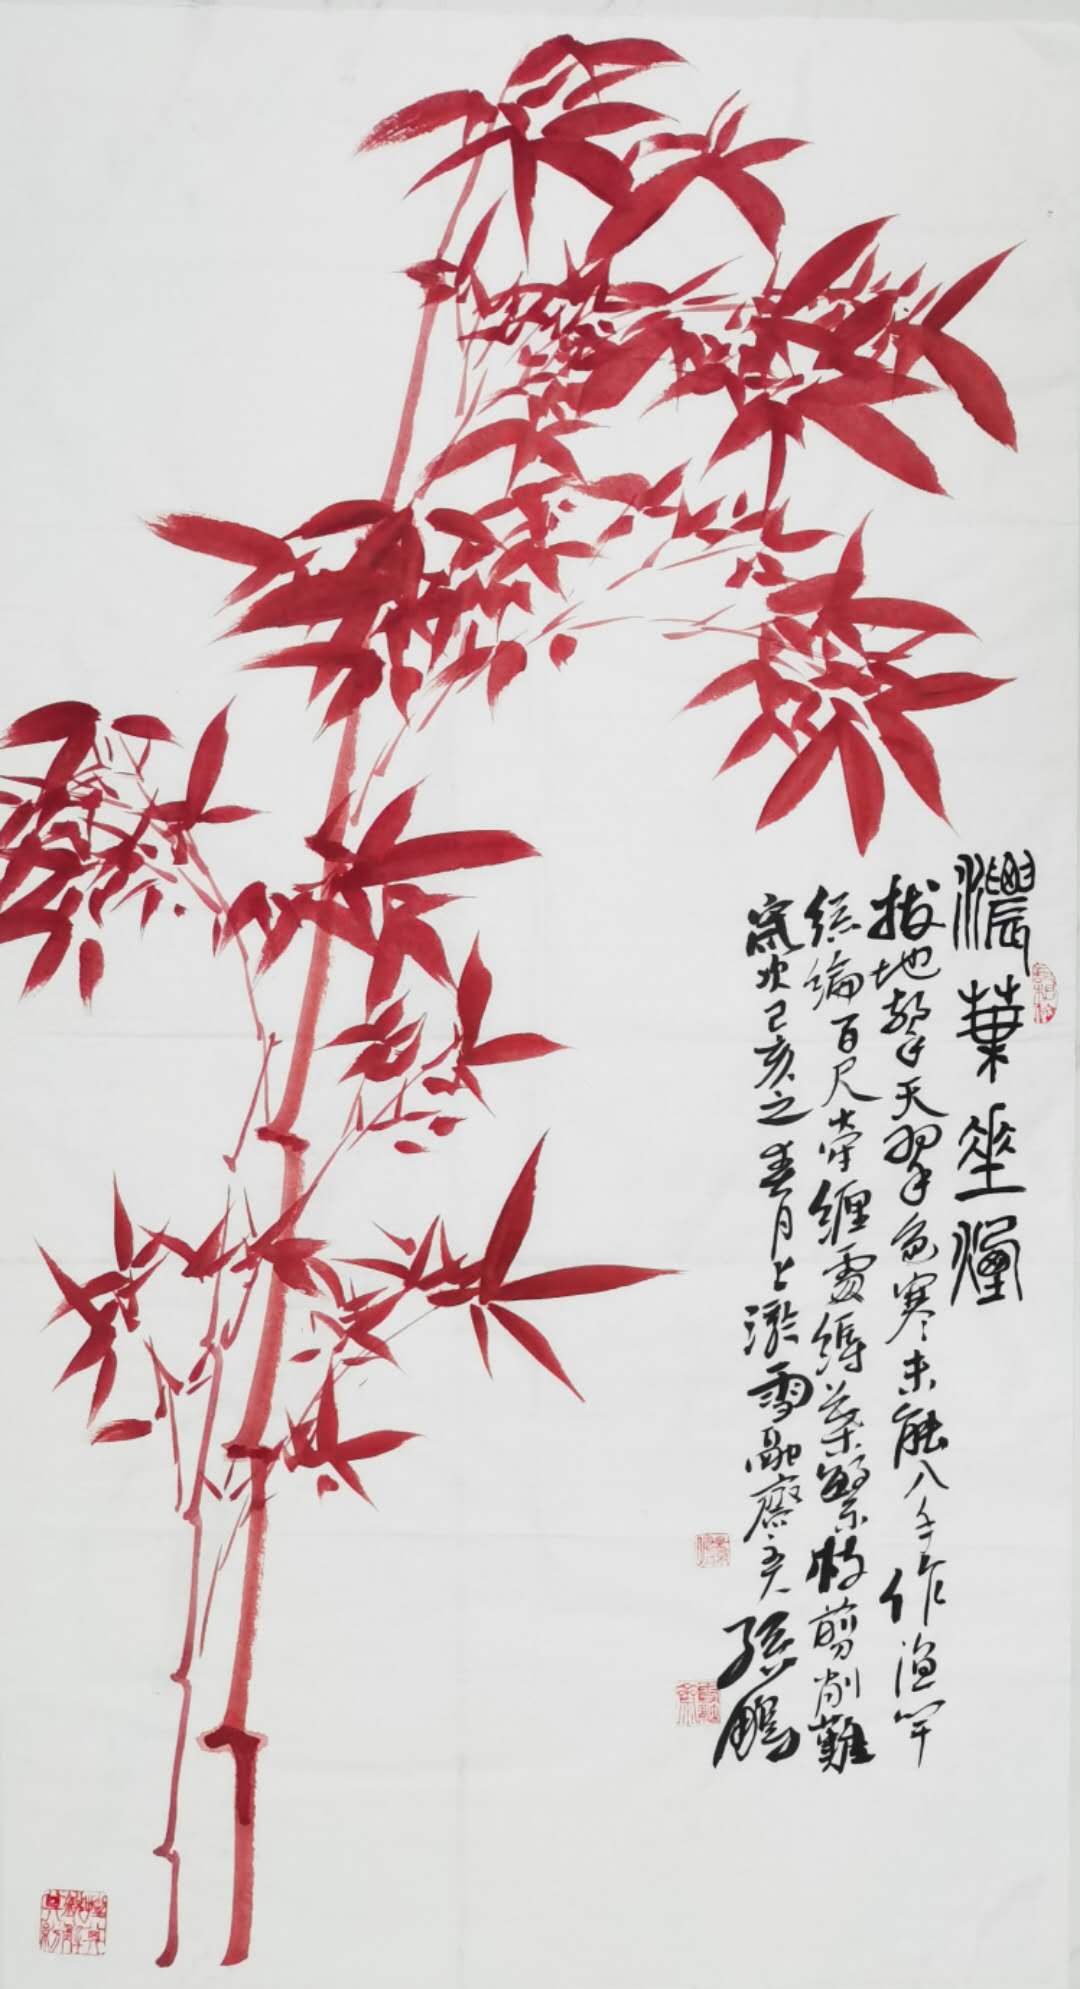 濃葉垂煙
拔地擎天翠色寒未能入手作漁竿
絲綸百尺牽纏處縛葉繁枝剪削難
歲次己亥之春月上澣雪融齋主人孫鵬